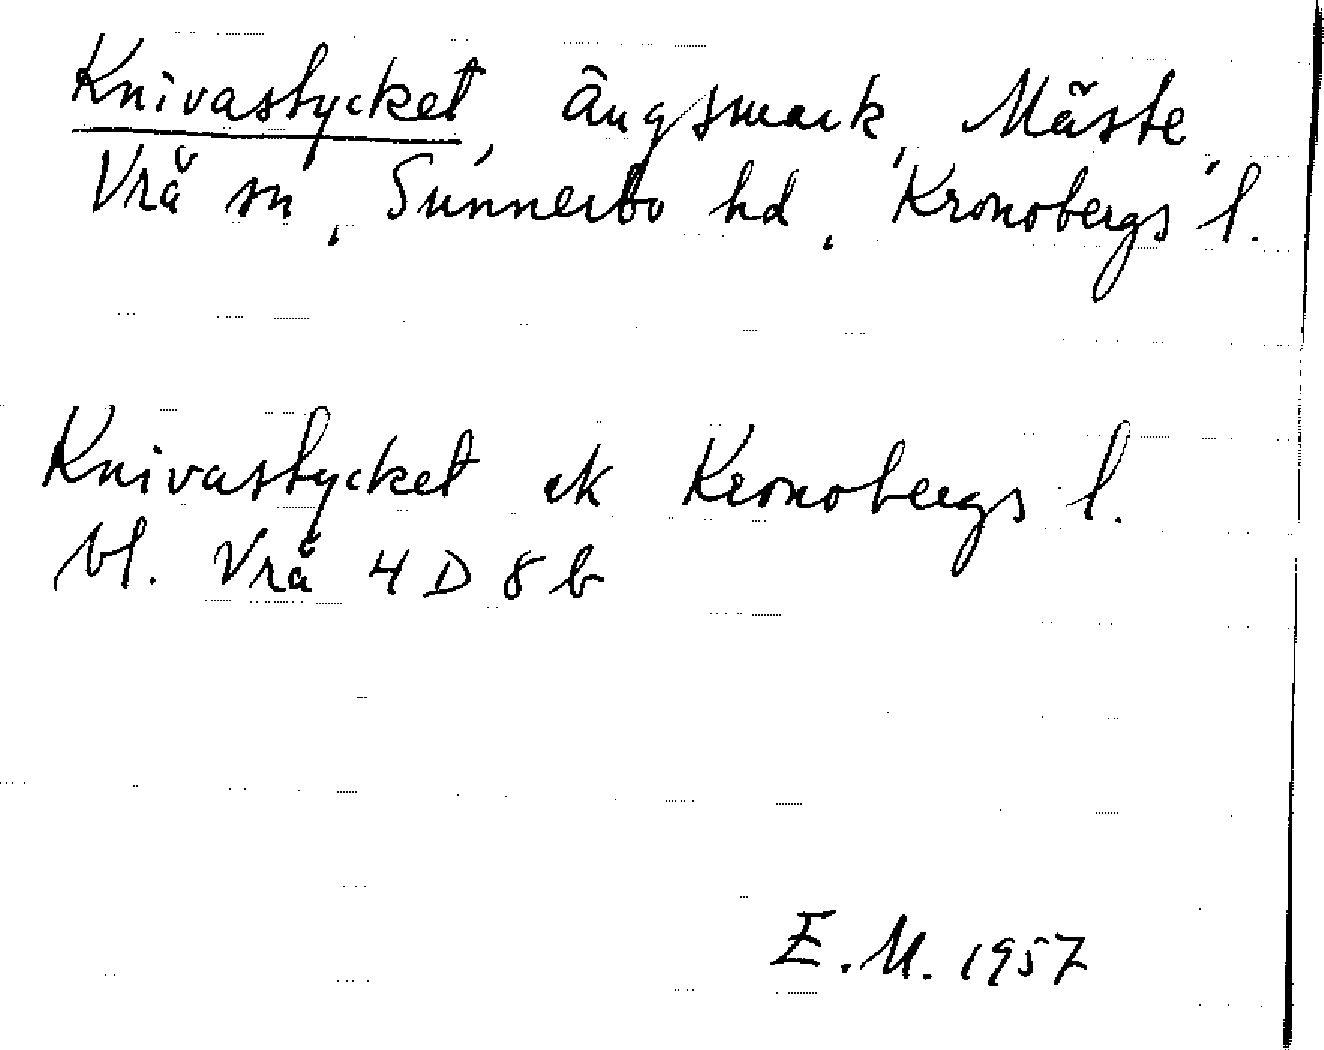 Knivastycket, ängsmark, Mäste,
Vrå sn, Sunnerbo hd, Kronobergs l.
Knivastycket ek Kronobergs l.
bl. Vrå 4 D 8 b
E.M. 1957